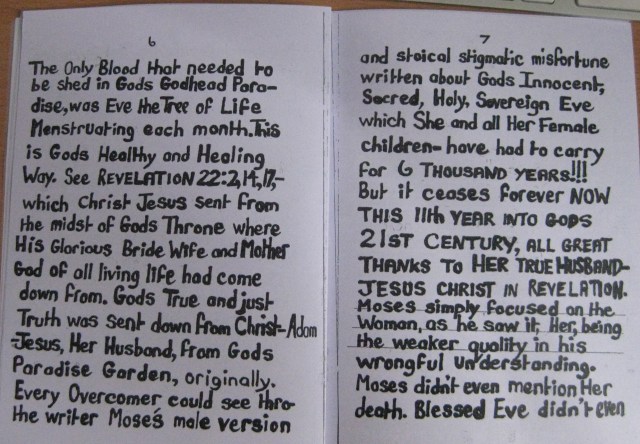 6
The Only Blood that needed to
be shed in Gods Godhead Para-
dise, was Eve the Tree of Life
Menstruating each month. This
is Gods Healthy and Healing
Way. See REVELATION 22:2,14,17,-
which Christ Jesus sent from
the midst of Gods Throne where
His Glorious Bride Wife and Mother
God of all living life had come
down from. Gods True and just
Truth was sent down from Christ-Adam
-Jesus, Her Husband, from Gods
Paradise Garden, originally.
Every Overcomer could see thro-
the writer Moses's male version
7
and stoical stigmatic misfortune
written about Gods Innocent,
Sacred, Holy, Sovereign Eve
which She and all Her Female
children- have had to carry
for 6 THOUSAND YEARS!!!
But it ceases forever NOW
THIS 11th YEAR INTO GODS
21ST CENTURY, ALL GREAT
THANKS TO HER TRUE HUSBAND-
JESUS CHRIST IN REVELATION.
Moses simply focused on the
Woman, as he saw it, Her, being
the weaker quality in his
wrongful understanding.
Moses didn't even mention Her
death. Blessed Eve didn't even